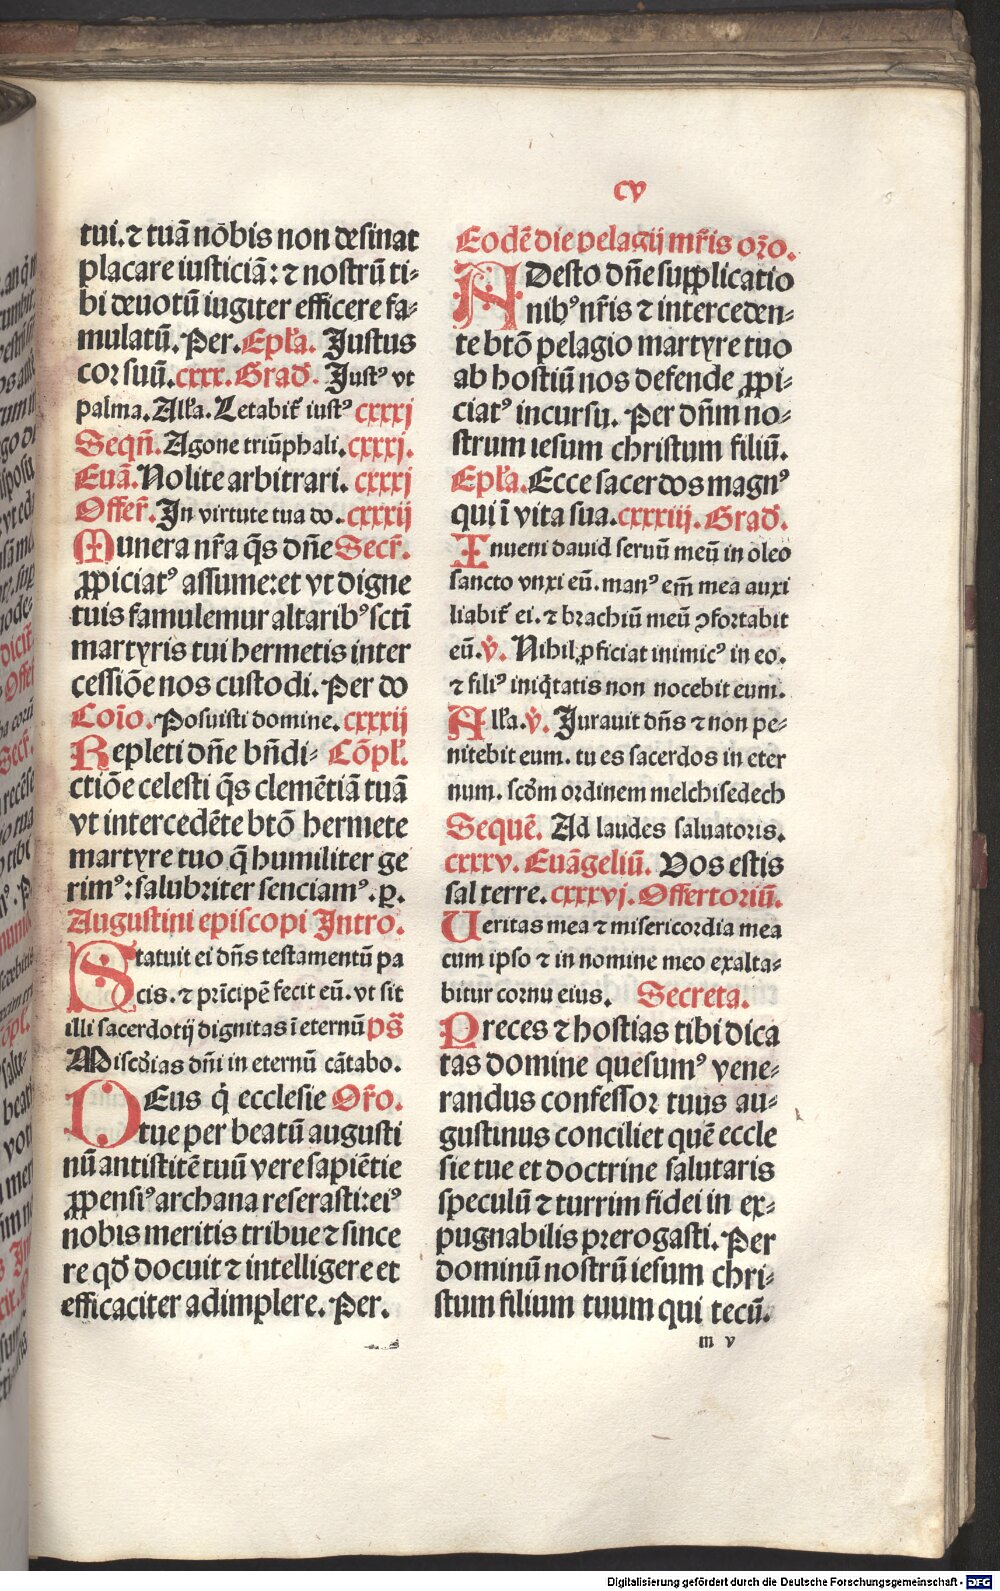 cv
tui. ⁊ tuā nōbis non desinat
placare iusticiā: ⁊ nostrū ti-
bi deuotū iugiter efficere fa-
mulatū. Per. Epl̄a. Justus
cor suū. cxxx. Grad̄. Justꝰ vt
palma. All̄a. Letabit̄ iustꝰ cxxxj
Seqn̄. Agone triūphali. cxxxj.
Euā. Nolite arbitrari. cxxxj
Offer̄. In virtute tua do. cxxxij
Munera nr̄a q̄s dn̄e Secr̄.
ꝓpiciatꝰ assume: et vt digne
tuis famulemur altaribꝰ sctī
martyris tui hermetis inter
cessiōe nos custodi. Per do
Coīo. Posuisti domine. cxxxij
Repleti dn̄e bn̄di- Cōpl̄.
ctiōe celesti q̄s clemētiā tuā
vt intercedēte btō hermete
martyre tuo q̄ humiliter ge
rimꝰ: salubriter senciamꝰ. p.
Augustini episcopi Intro.
Statuit ei dn̄s testamentū pa
cis. ⁊ prīcipē fecit eū. vt sit
illi sacerdotij dignitas ī eternū ps̄
Misc̄dias dn̄i in eternū cātabo.
DEus q̇ ecclesie Or̄o.
tue per beatū augusti
nū antistitē tuū vere sapiētie
ꝓpensiꝰ archana reserasti: eiꝰ
nobis meritis tribue ⁊ since
re qd̄ docuit ⁊ intelligere et
efficaciter adimplere. Per.
Eodē die pelagij mr̄is or̄o.
ADesto dn̄e supplicatio
nibꝰ nr̄is ⁊ interceden-
te btō pelagio martyre tuo
ab hostiū nos defende ꝓpi-
ciatꝰ incursu. Per dn̄m no-
strum iesum christum filiū.
Epl̄a. Ecce sacerdos magnꝰ
qui ī vita sua. cxxxiij. Grad̄.
Inueni dauid seruū meū in oleo
sancto vnxi eū. manꝰ em̄ mea auxi
liabit̄ ei. ⁊ brachiū meū ꝯfortabit
eū. v̇. Nihil ꝓficiat inimicꝰ in eo.
⁊ filiꝰ iniq̇tatis non nocebit eum.
All̄a. v̇. Jurauit dn̄s ⁊ non pe-
nitebit eum. tu es sacerdos in eter
num. scd̄m ordinem melchisedech
Sequē. Ad laudes saluatoris.
cxxxv. Euāgeliū. Vos estis
sal terre. cxxxvj. Offertoriū.
Ueritas mea ⁊ misericordia mea
cum ipso ⁊ in nomine meo exalta-
bitur cornu eius. Secreta.
Preces ⁊ hostias tibi dica
tas domine quesumꝰ vene-
randus confessor tuus au-
gustinus conciliet quē eccle
sie tue et doctrine salutaris
speculū ⁊ turrim fidei in ex-
pugnabilis prerogasti. Per
dominū nostrū iesum chri-
stum filium tuum qui tecū.
m v
Digitalisierung gefördert durch die Deutsche Forschungsgemeinschaft - DFG